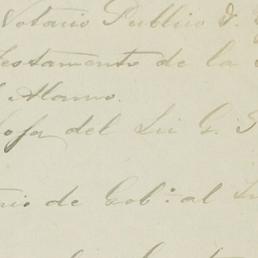 Notario Publico D.
Testamento de la
Alamo.
Sofa del Lic G. S
rio de Gob.º al